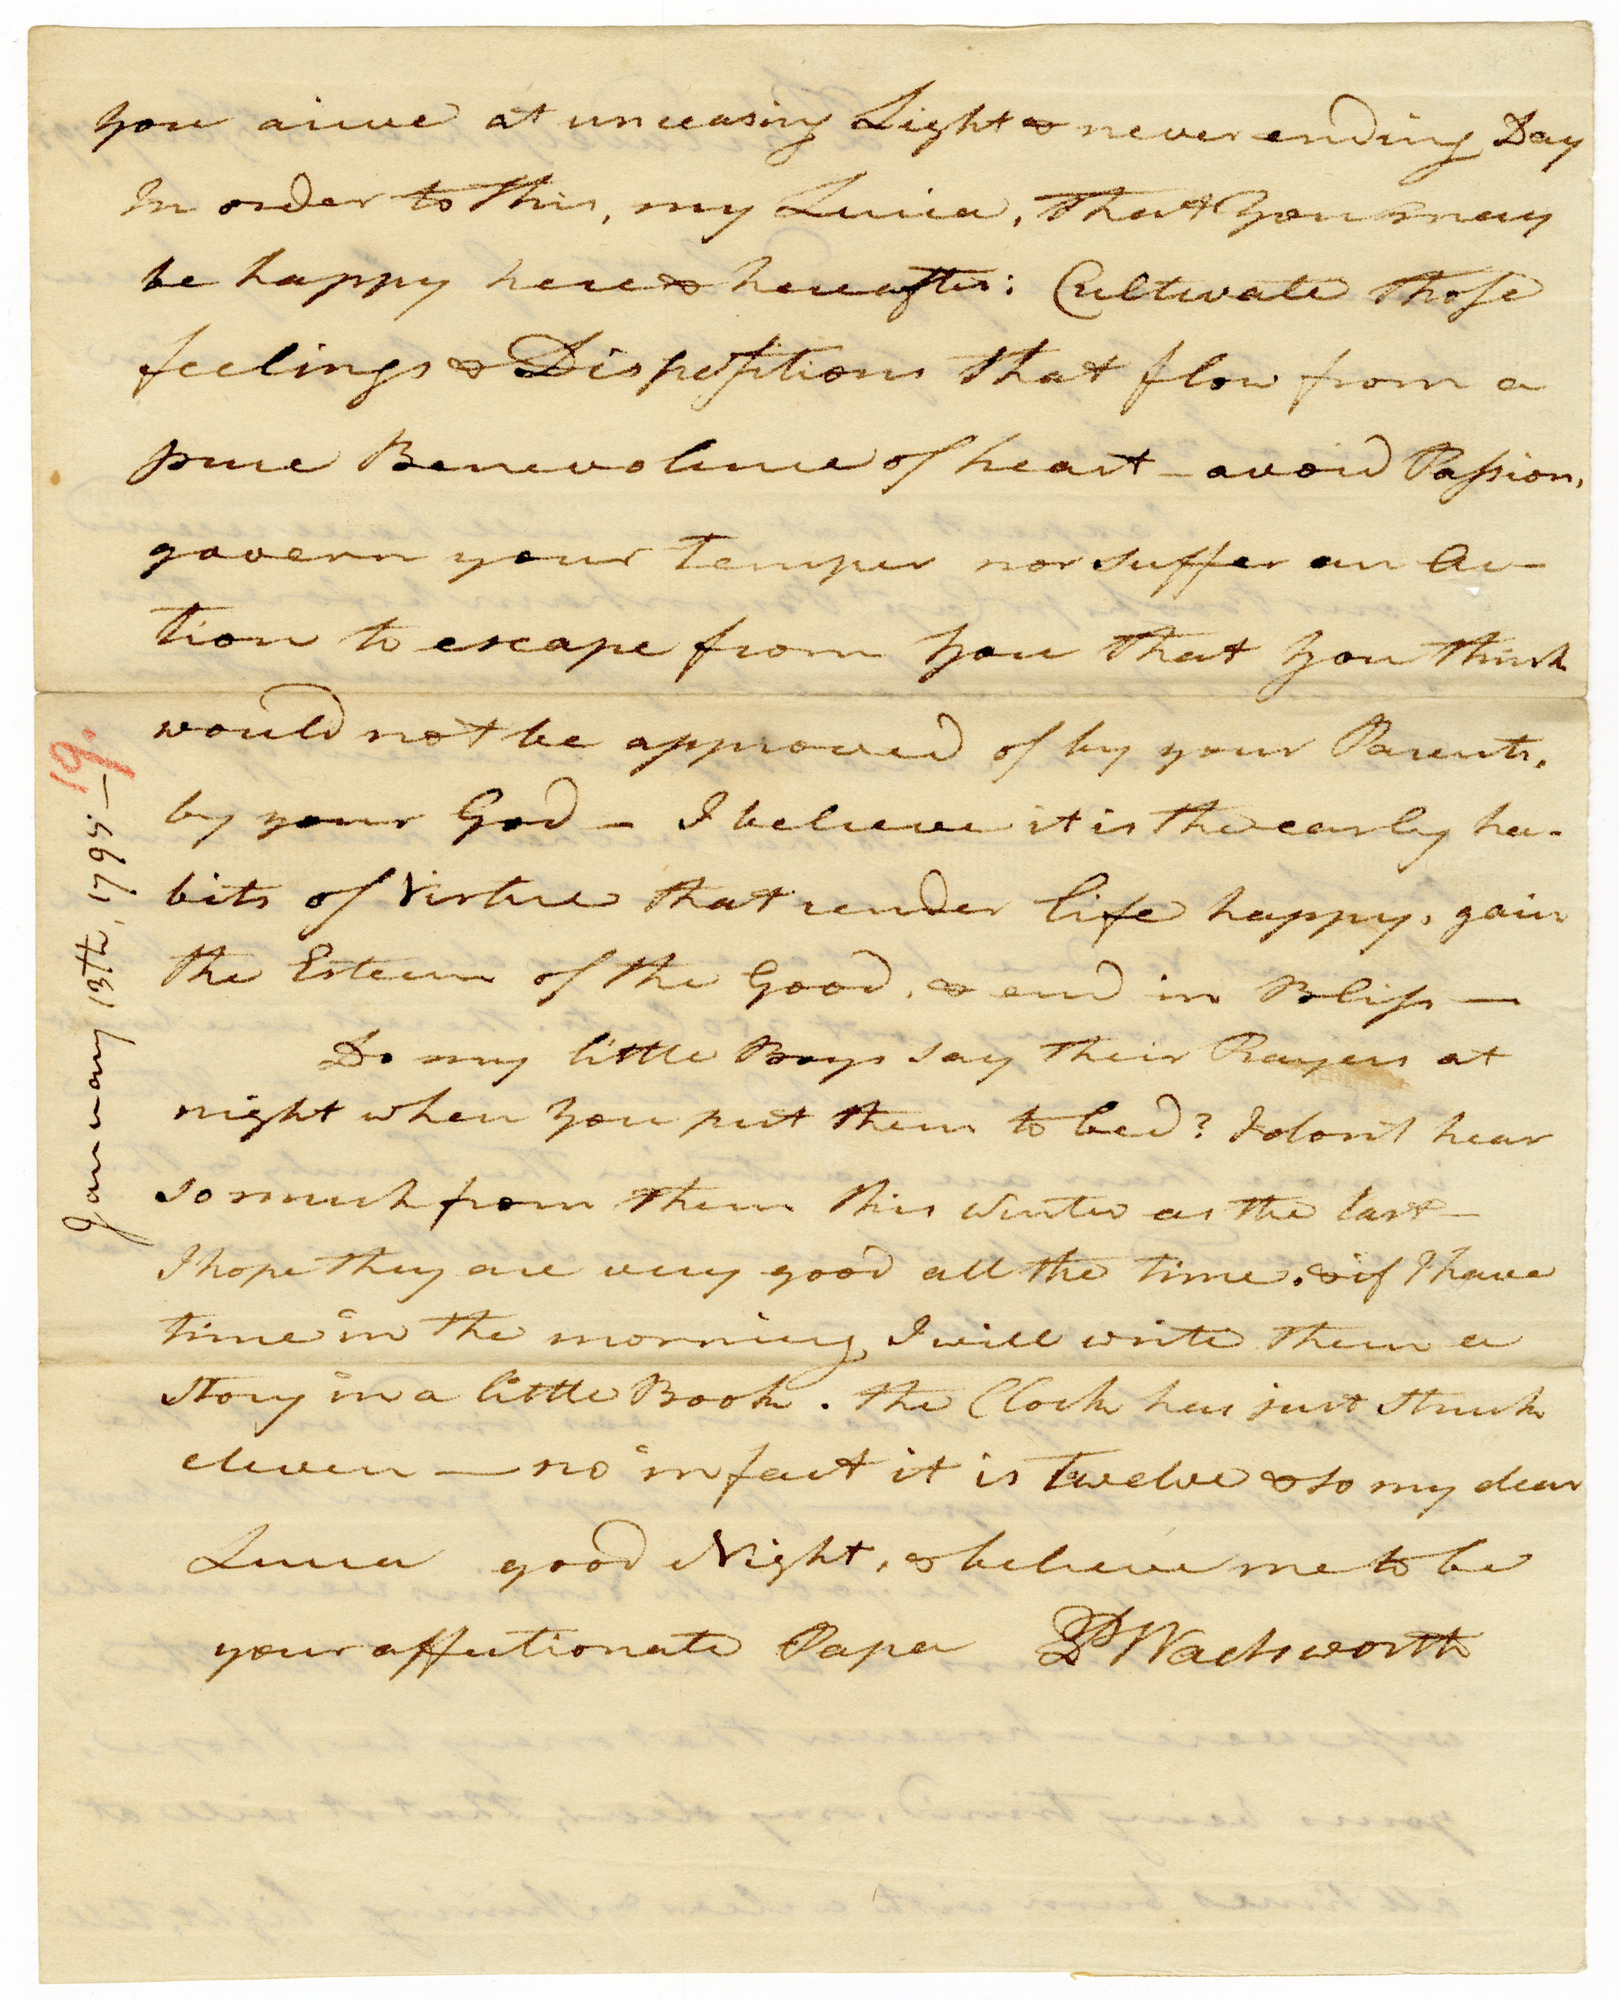 you arive at unceasing Light & never ending Day
In order to this, my Lucia, that you may
be happy here & hereafter: Cultivate those
feelings & Dispositions that flow from a
pure Benevolence of heart – avoid Passion,
govern your temper nor suffer an Ac-
tion to escape from you that you think
would not be approved of by your Parents,
by your God – I believe it is the early ha-
bits of Virtue that render life happy, gain
the Esteem of the Good, & end in Bliss —
Do my little Boys say their Prayers at
night when you put them to bed? I don't hear
so much from them this Winter as the last –
I hope they are very good all the time. & if I have
time in the morning, I will write them a
story in a little Book. the Clock has just struck
eleven — no in fact it is Twelve & so my dear
Lucia good Night, & believe me to be
your affectionate Papa P Wadsworth
January 13th, 1795 —
19.